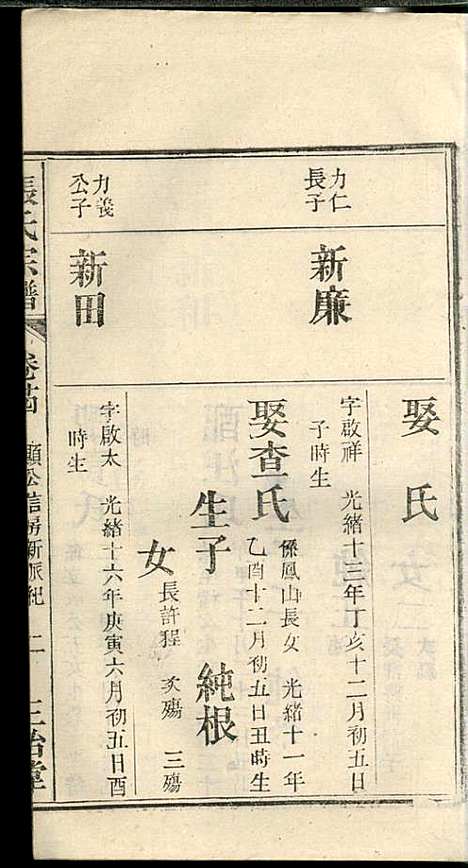 娶　氏
力仁
長子
新廉
字啟祥　光緒十三年丁亥十二月初五日
子時生
娶查氏
係鳳山長女　光緒十一年
乙酉十二月初五日丑時生
生子　純根
女
長許程　次殤　三殤
力義
公子
新田
字啟太　光緒十六年庚寅六月初五日酉
時生
張氏宗譜　卷廿四　顯公信房新派紀　二　三治堂